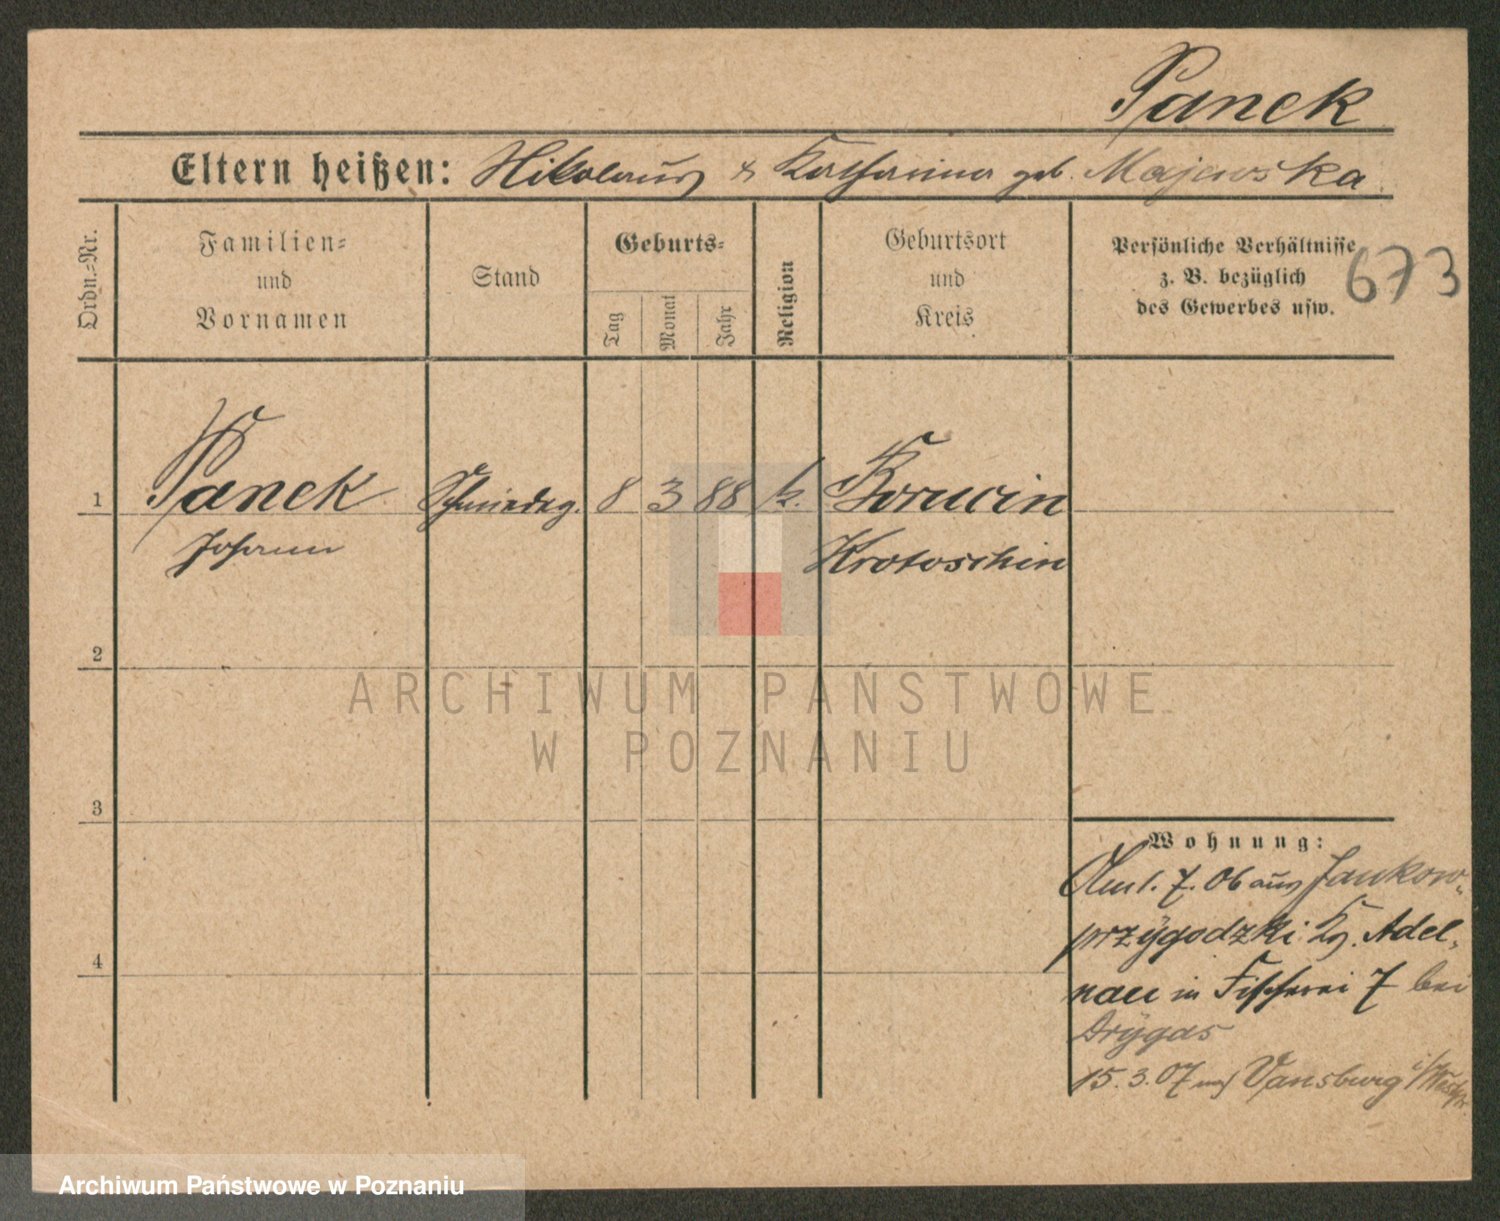 Panek
Eltern heißen: Nikolaus & Katharina geb. Majewska
Ordn.=Nr.
Familien=
und
Vornamen
Stand
Geburts=
Tag
Monat
Jahr
Religion
Geburtsort
und
Kreis
Persönliche Verhältnisse
z. B. bezüglich
des Gewerbes usw.
673
1 Panek Schmiedeg. 8 3 88 k. Korucin
Johann Krotoschin
2
ARCHIWUM PAŃSTWOWE
W POZNANIU
3
Wohnung:
7. 06 aus Jankow-
przygodzki Kr. Adel-
4
nau in Fischerei 7 bei
Drygas
15.3.07 nach Vansburg i/Westpr.
Archiwum Państwowe w Poznaniu